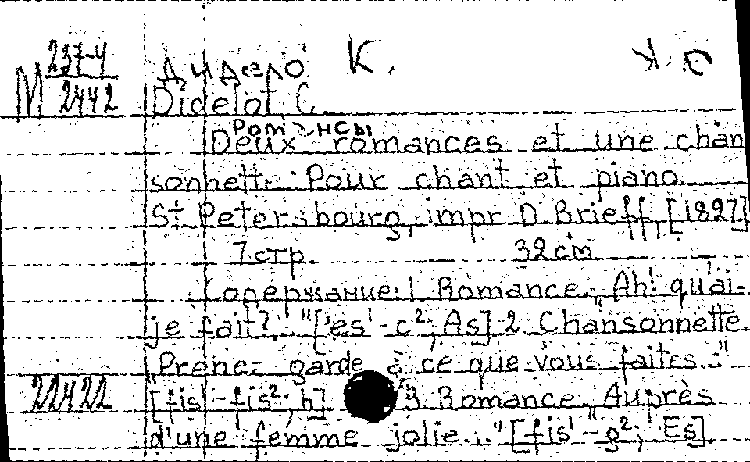 М 237-4
2442
Дидело К. К. С
Didelot C.
Романсы
Deux romances et une chan
sonnett. Pour chant et piano.
St Petersbourg, impr D. Brieff, [1827]
7 стр. 32 cm
Содержание: 1 Romance „Ah! quai-
je fait?.." [es¹-c²; As] 2. Chansonnette
"Prenez garde à ce que vous faites.."
22422 [fis¹-fis²; h] 3. Romance „Auprès
d'une femme jolie.." [fis¹-g²; Es].